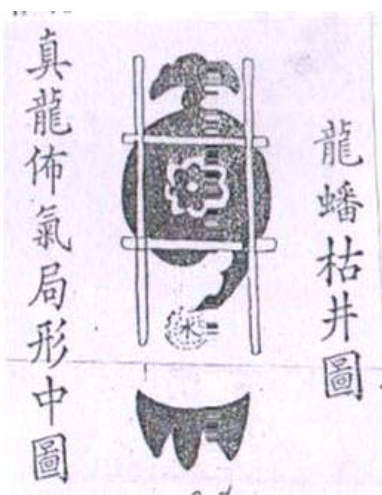 龍蟠枯井圖
真龍佈氣局形中圖
水